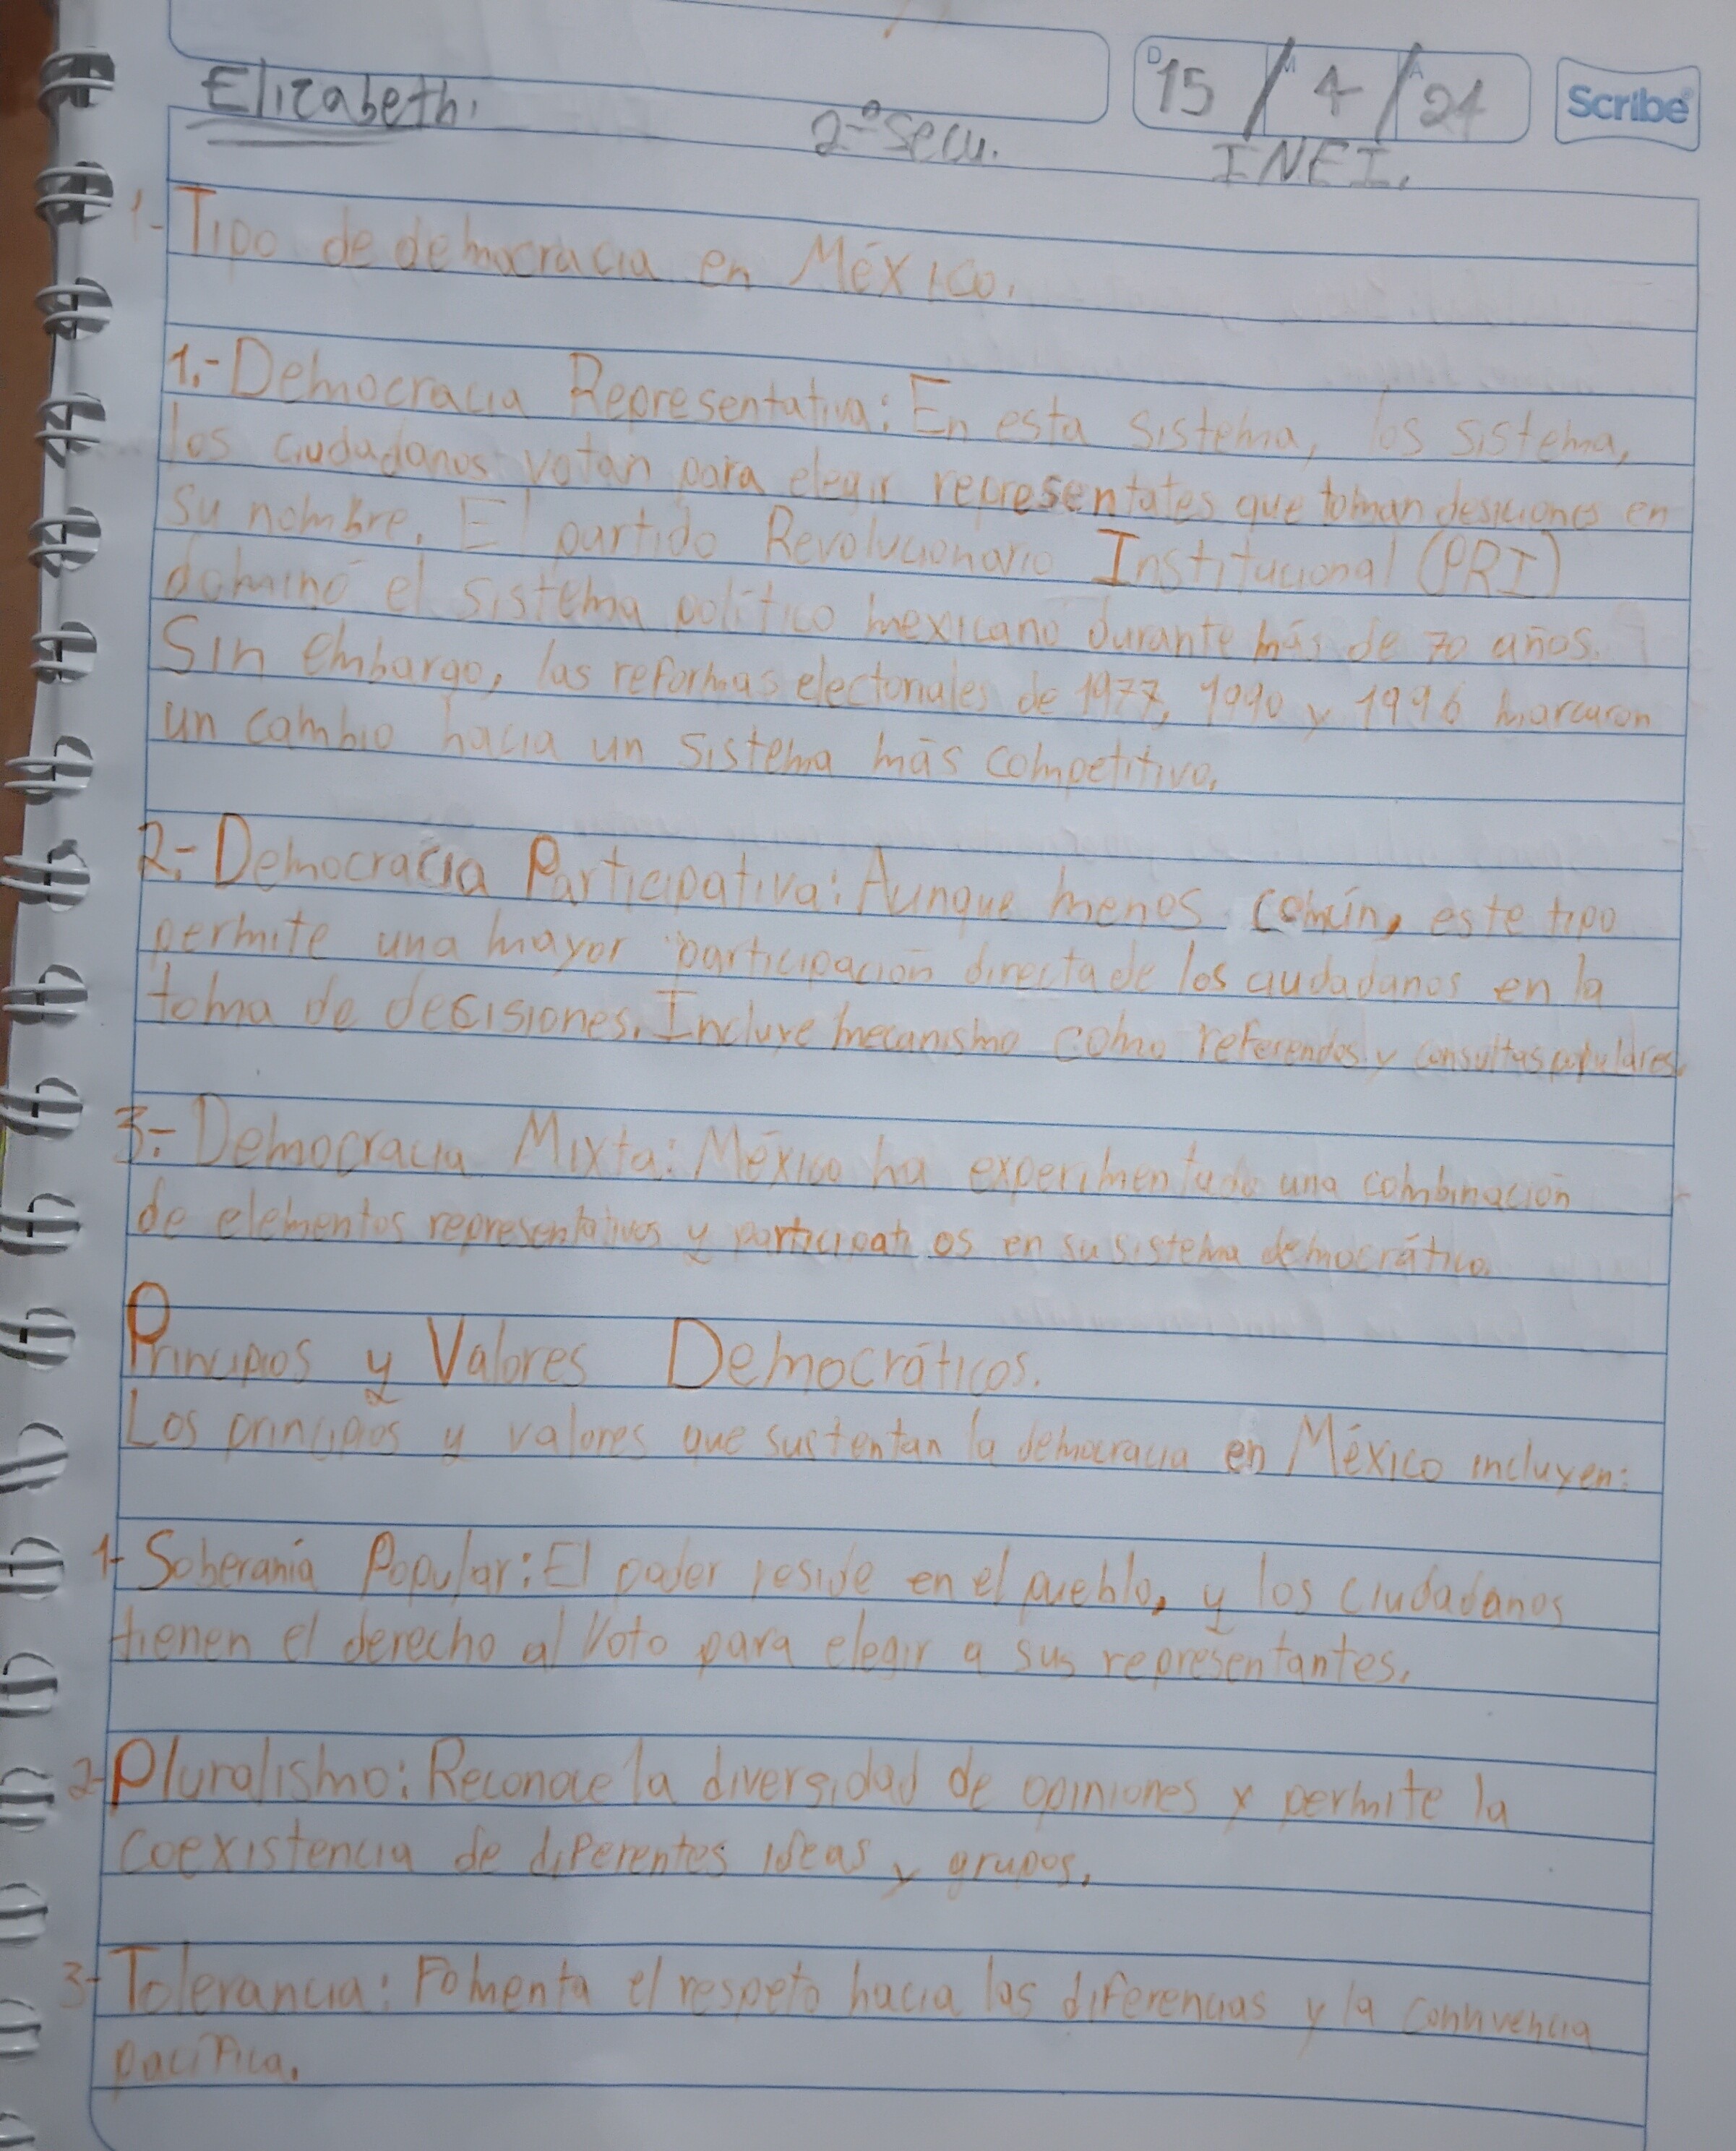 D 15 / M 4 / A 24
Scribe
Elizabeth.
2º Secu.
INEI.
1- Tipo de democracia en México.
1.- Democracia Representativa: En esta sistema, los sistema,
los ciudadanos votan para elegir representates que toman desiciones en
su nombre. El partido Revolucionario Institucional (PRI)
dominó el sistema político mexicano durante más de 70 años.
Sin embargo, las reformas electorales de 1977, 1990 y 1996 marcaron
un cambio hacia un sistema más competitivo.
2.- Democracia Participativa: Aunque menos común, este tipo
permite una mayor participación directa de los ciudadanos en la
toma de decisiones. Incluye mecanismo como referendos y consultas populares.
3.- Democracia Mixta: México ha experimentado una combinación
de elementos representativos y participati os en su sistema democrático.
Principios y Valores Democráticos.
Los principios y valores que sustentan la democracia en México incluyen:
1- Soberanía Popular: El poder reside en el pueblo, y los ciudadanos
tienen el derecho al voto para elegir a sus representantes.
2- Pluralismo: Reconoce la diversidad de opiniones y permite la
coexistencia de diferentes ideas y grupos.
3- Tolerancia: Fomenta el respeto hacia las diferencias y la convivencia
pacífica.